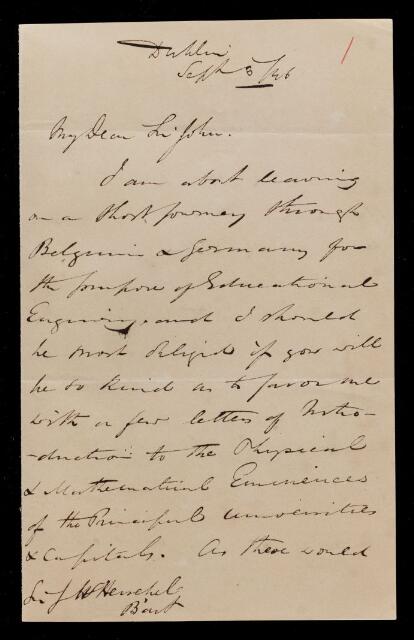 Dublin
Sept 3/46
My Dear Sir John.
I am about leaving
on a short Journey through
Belgium & Germany for
the purpose of Educational
Enquiry, and I should
be most obliged if you will
be so kind as to favor me
with a few letters of Intro-
-duction to the Physical
& Mathematical Eminences
of the Principal universities
& capitals. As these would
Sir J W Herschel
Bart